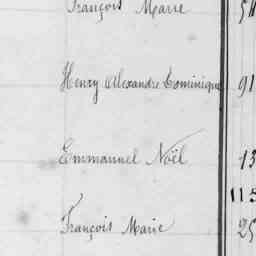 François Marie 54
Henry Alexandre Dominique 91
Emmanuel Noël 13
115
François Marie 25